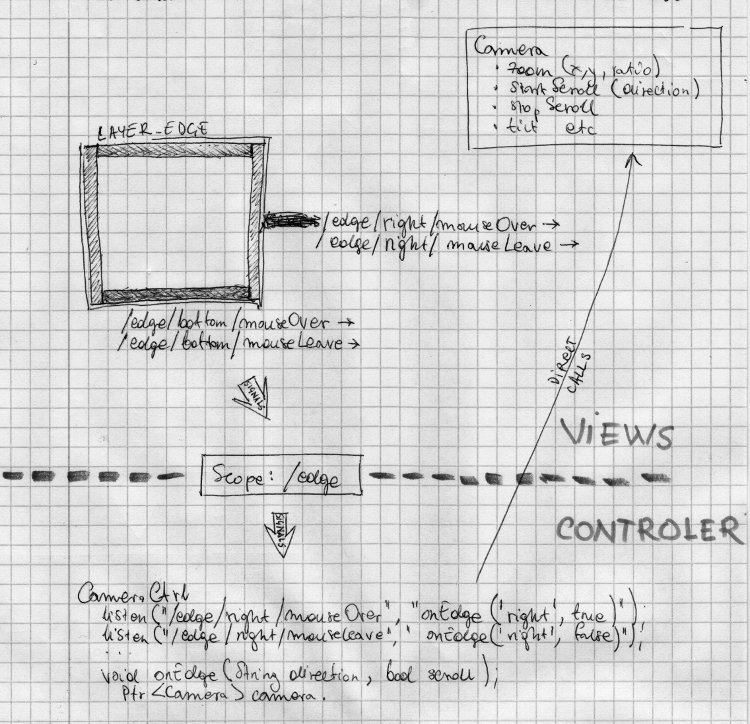 Camera
• zoom (x,y, ratio)
• startScroll (direction)
• stop Scroll
• tick etc
LAYER_EDGE
/edge/right/mouseOver →
/edge/right/ mouseLeave →
/edge/bottom/mouseOver →
/edge/bottom/mouseLeave →
SIGNALS
DIRECT
CALLS
VIEWS
Scope: /edge
CONTROLER
SIGNALS
CameraCtrl
listen ("/edge/right/mouseOver", "onEdge ('right', true)");
listen ("/edge/right/mouseleave", "onEdge('right', false)");
...
void onEdge (String direction, bool scroll);
Ptr <Camera> camera.